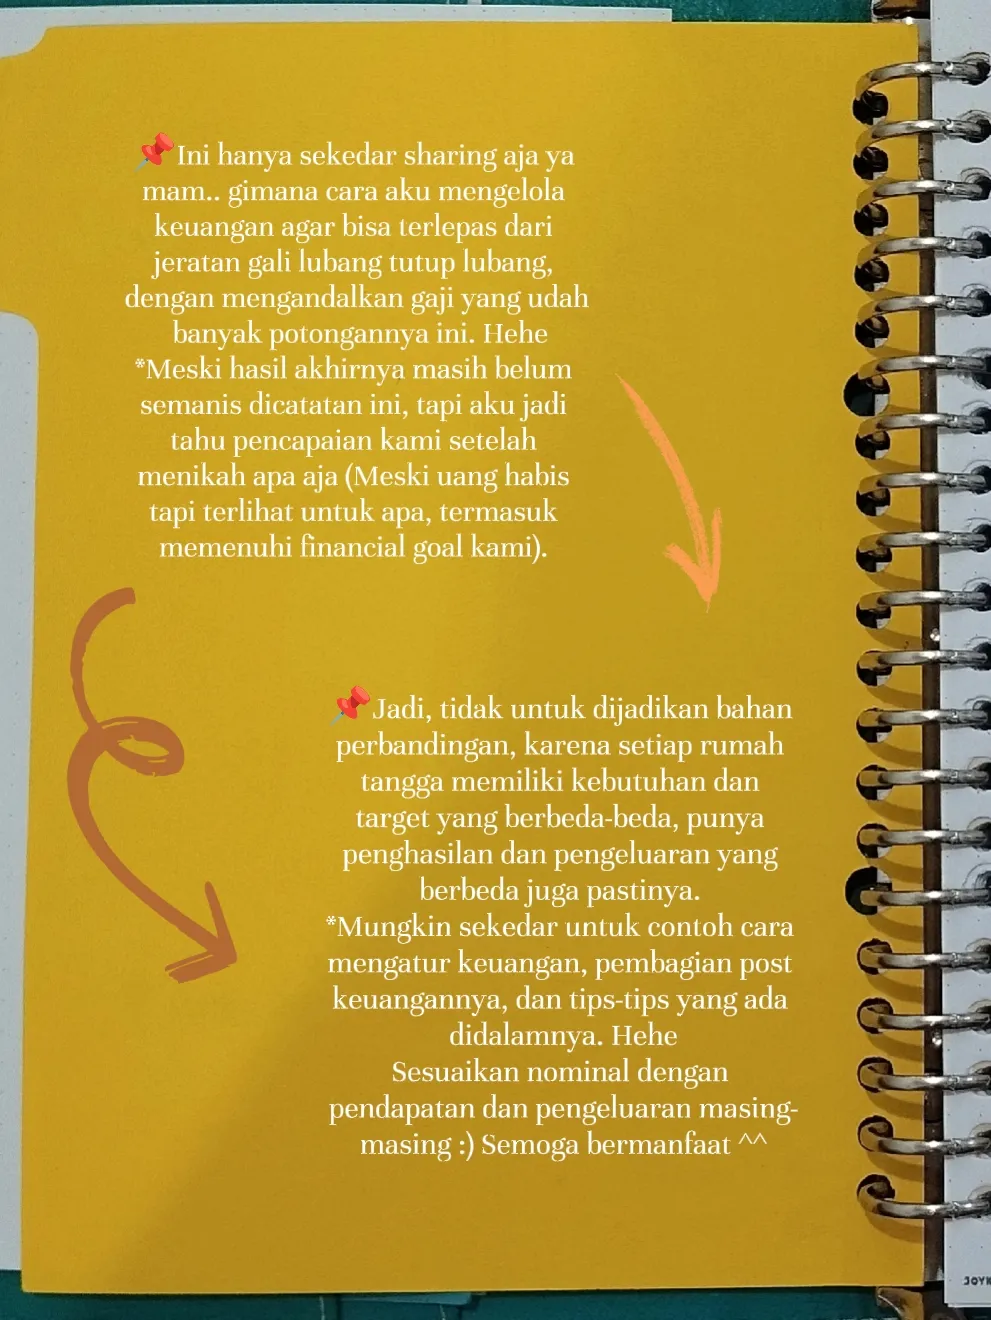 📌Ini hanya sekedar sharing aja ya
mam.. gimana cara aku mengelola
keuangan agar bisa terlepas dari
jeratan gali lubang tutup lubang,
dengan mengandalkan gaji yang udah
banyak potongannya ini. Hehe
*Meski hasil akhirnya masih belum
semanis dicatatan ini, tapi aku jadi
tahu pencapaian kami setelah
menikah apa aja (Meski uang habis
tapi terlihat untuk apa, termasuk
memenuhi financial goal kami).
📌Jadi, tidak untuk dijadikan bahan
perbandingan, karena setiap rumah
tangga memiliki kebutuhan dan
target yang berbeda-beda, punya
penghasilan dan pengeluaran yang
berbeda juga pastinya.
*Mungkin sekedar untuk contoh cara
mengatur keuangan, pembagian post
keuangannya, dan tips-tips yang ada
didalamnya. Hehe
Sesuaikan nominal dengan
pendapatan dan pengeluaran masing-
masing :) Semoga bermanfaat ^^